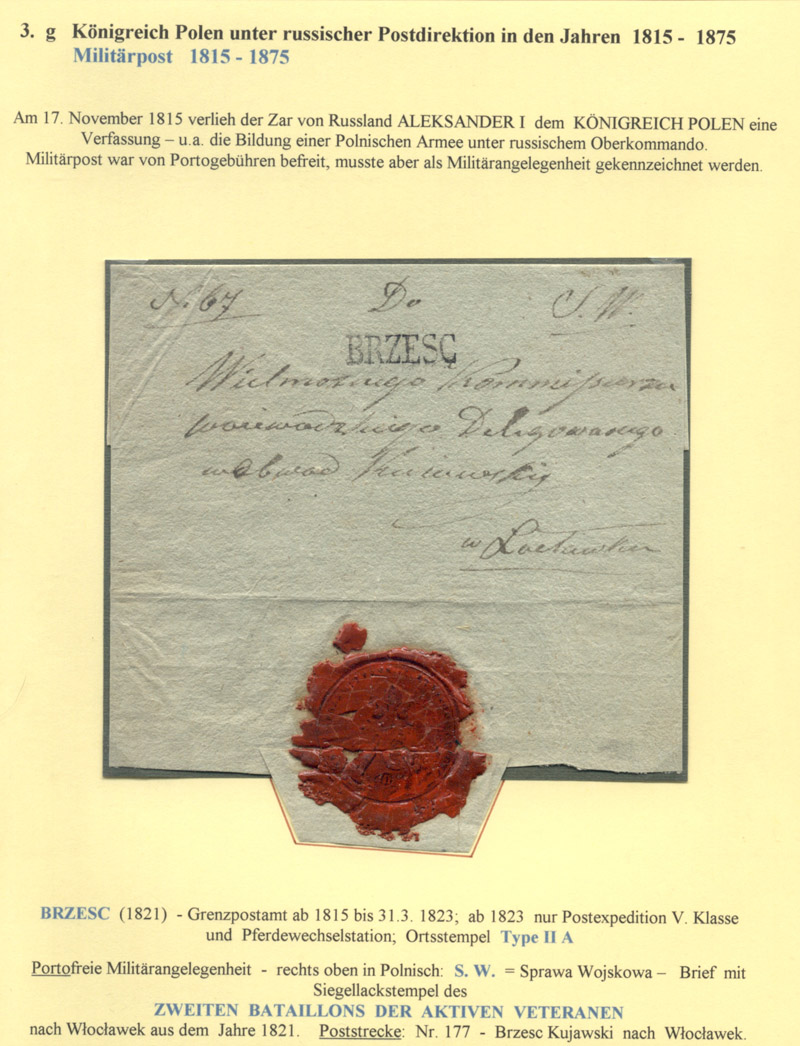 3. g Königreich Polen unter russischer Postdirektion in den Jahren 1815 - 1875
Militärpost 1815 - 1875
Am 17. November 1815 verlieh der Zar von Russland ALEKSANDER I dem KÖNIGREICH POLEN eine
Verfassung – u.a. die Bildung einer Polnischen Armee unter russischem Oberkommando.
Militärpost war von Portogebühren befreit, musste aber als Militärangelegenheit gekennzeichnet werden.
N. 67 Do S. W.
BRZESC
Wielmożnego Kommissarza
Woiewodzkiego Delegowanego
w Obwod Kuiawski
w
BRZESC (1821) - Grenzpostamt ab 1815 bis 31.3. 1823; ab 1823 nur Postexpedition V. Klasse
und Pferdewechselstation; Ortsstempel Type II A
Portofreie Militärangelegenheit - rechts oben in Polnisch: S. W. = Sprawa Wojskowa – Brief mit
Siegellackstempel des
ZWEITEN BATAILLONS DER AKTIVEN VETERANEN
nach Włocławek aus dem Jahre 1821. Poststrecke: Nr. 177 - Brzesc Kujawski nach Włocławek.